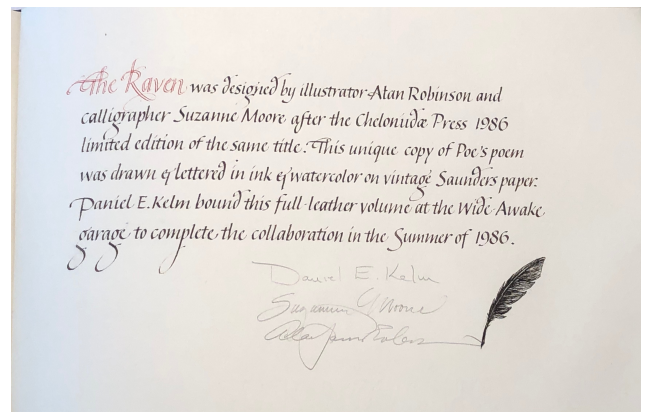 The Raven was designed by illustrator Alan Robinson and
calligrapher Suzanne Moore after the Cheloniidæ Press 1986
limited edition of the same title. This unique copy of Poe's poem
was drawn & lettered in ink & watercolor on vintage Saunders paper.
Daniel E. Kelm bound this full-leather volume at the Wide Awake
garage to complete the collaboration in the Summer of 1986.
Daniel E. Kelm
Suzanne Moore
Alan James Robinson